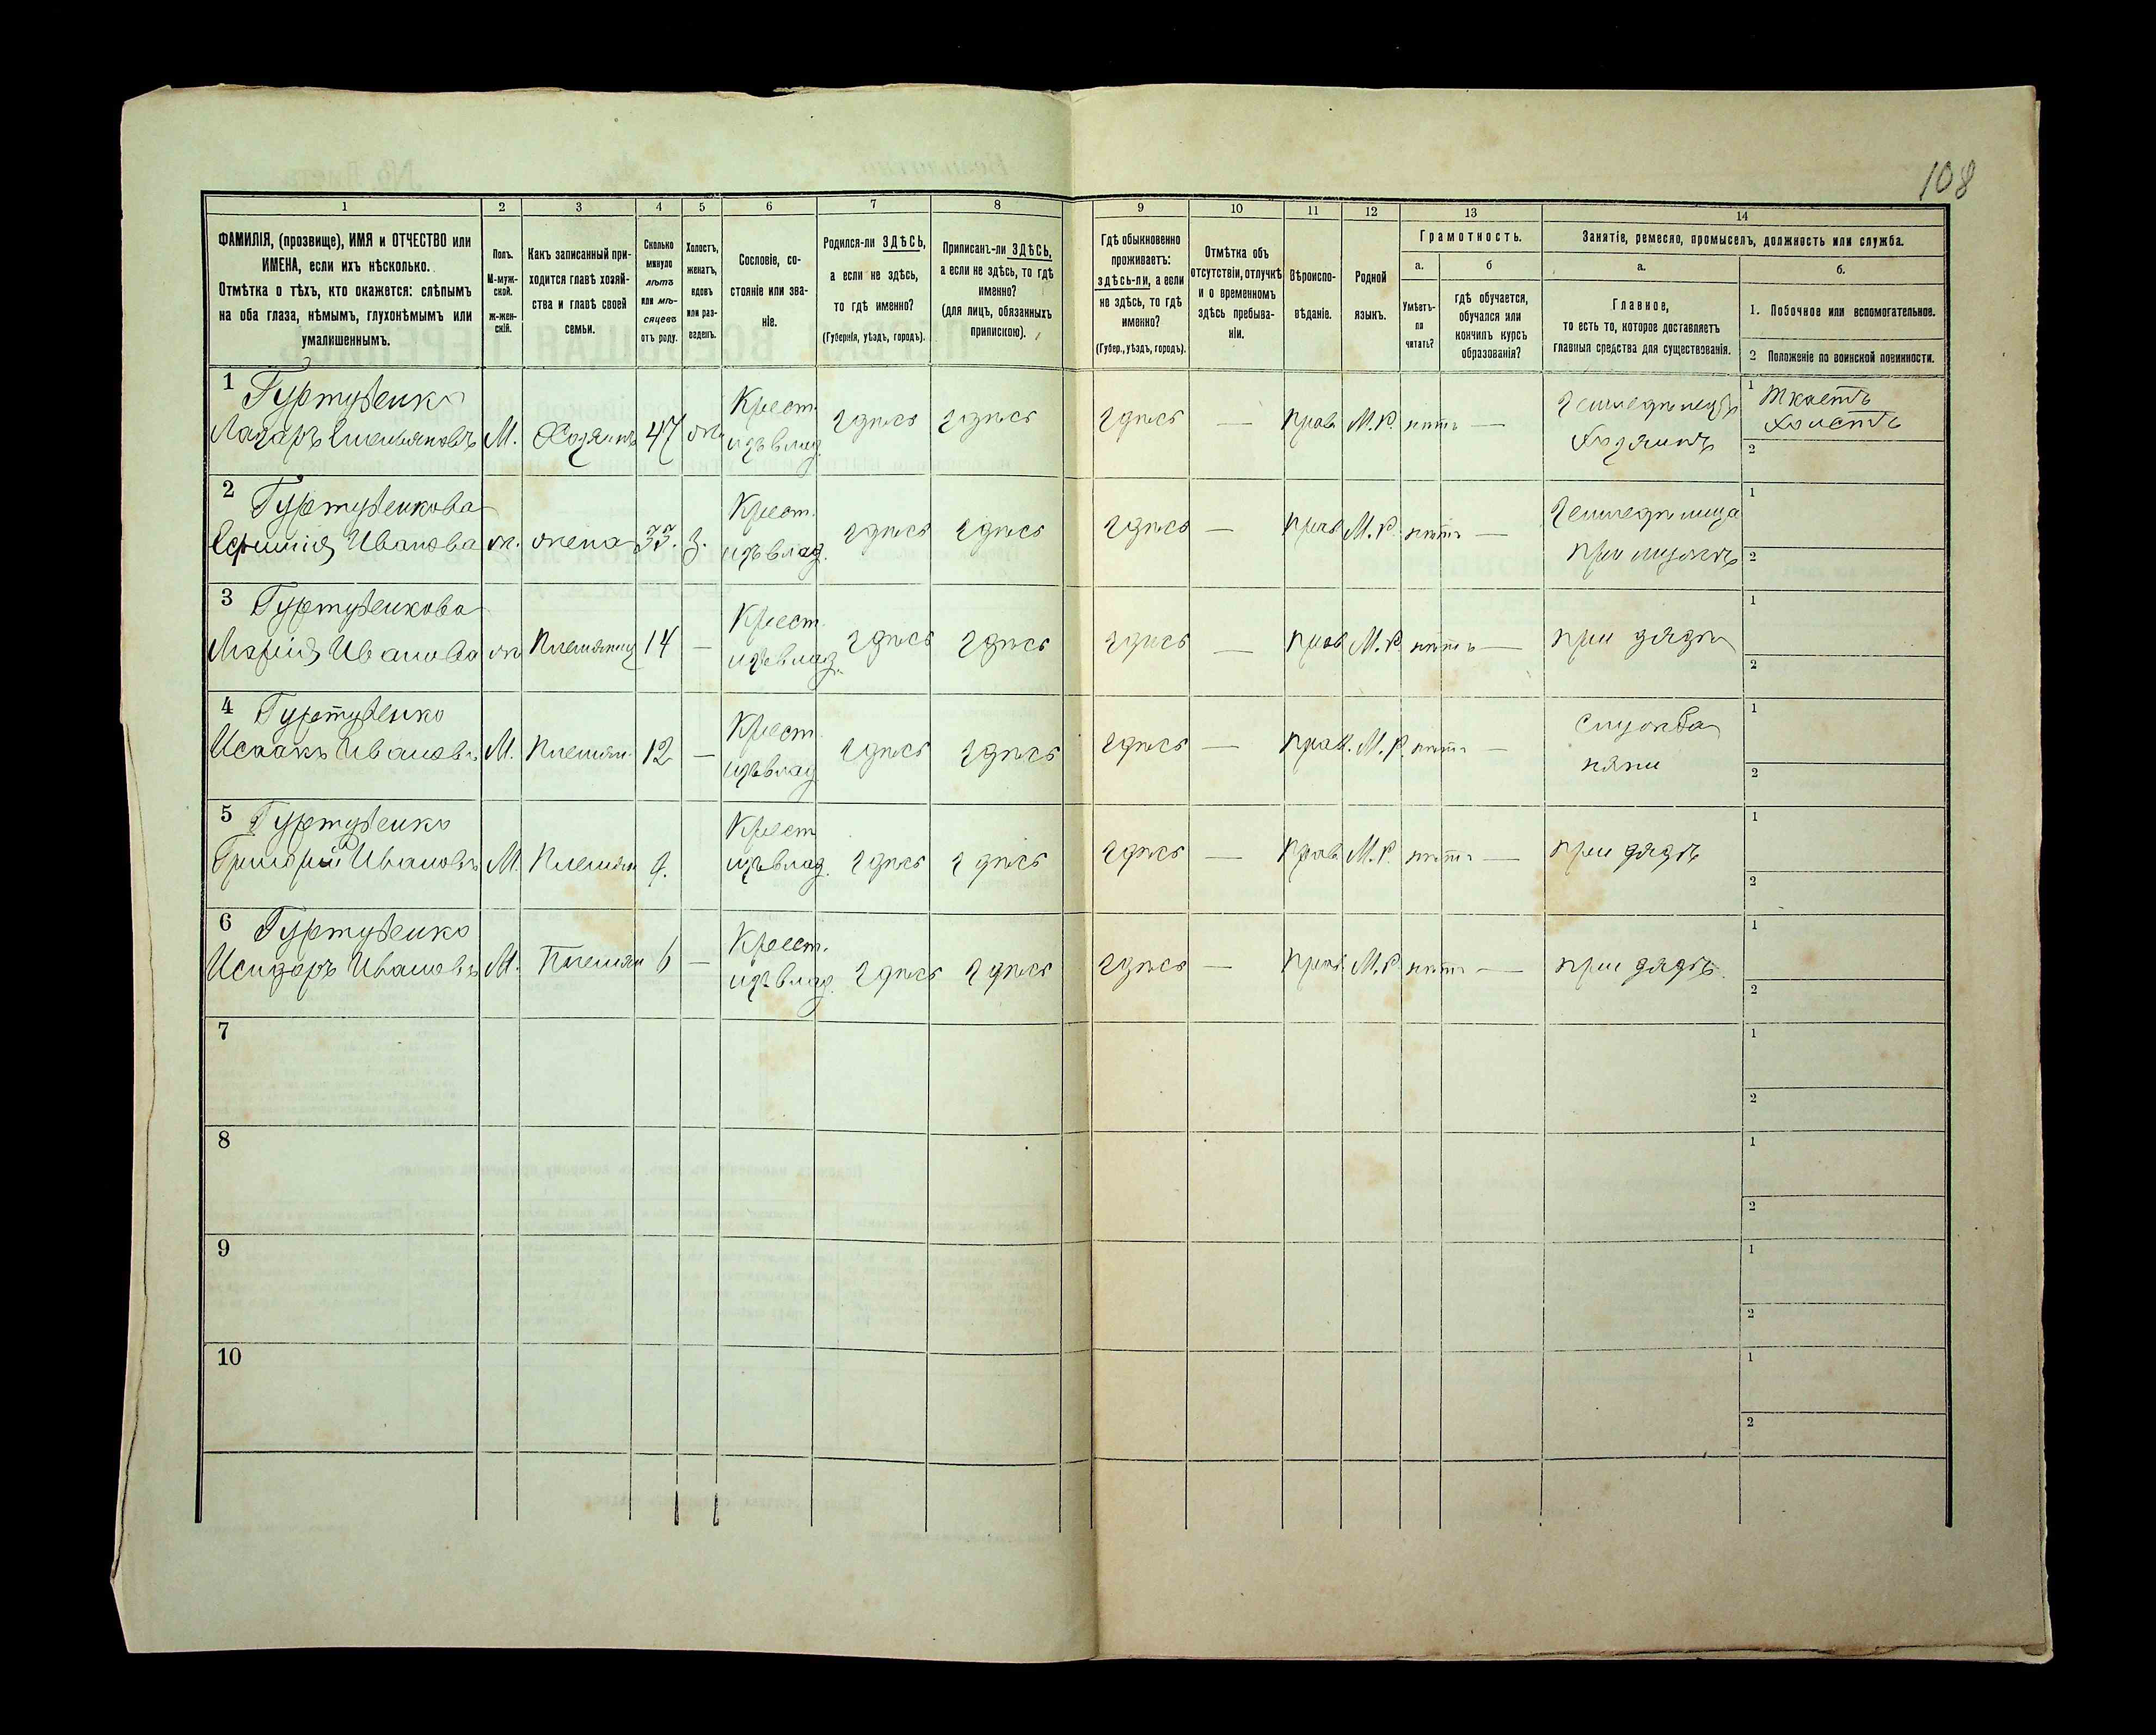 108
1 2 3 4 5 6 7 8 9 10 11 12 13 14
ФАМИЛІЯ, (прозвище), ИМЯ и ОТЧЕСТВО или
ИМЕНА, если ихъ нѣсколько.
Отмѣтка о тѣхъ, кто окажется: слѣпымъ
на оба глаза, нѣмымъ, глухонѣмымъ или
умалишеннымъ.
Полъ.
М-муж-
ской.
ж-жен-
скій.
Какъ записанный при-
ходится главѣ хозяй-
ства и главѣ своей
семьи.
Сколько
минуло
лѣтъ
или мѣ-
сяцевъ
отъ роду.
Холостъ,
женатъ,
вдовъ
или раз-
веденъ.
Сословіе, со-
стояніе или зва-
ніе.
Родился-ли ЗДѢСЬ,
а если не здѣсь,
то гдѣ именно?
(Губернія, уѣздъ, городъ).
Приписанъ-ли ЗДѢСЬ,
а если не здѣсь, то гдѣ
именно?
(для лицъ, обязанныхъ
припискою).
Гдѣ обыкновенно
проживаетъ:
здѣсь-ли, а если
не здѣсь, то гдѣ
именно?
(Губер., уѣздъ, городъ).
Отмѣтка объ
отсутствіи, отлучкѣ
и о временномъ
здѣсь пребыва-
ніи.
Вѣроиспо-
вѣданіе.
Родной
языкъ.
Грамотность.
а.
Умѣетъ-
ли
читать?
б
гдѣ обучается,
обучался или
кончилъ курсъ
образованія?
Занятіе, ремесло, промыселъ, должность или служба.
а.
Главное,
то есть то, которое доставляетъ
главныя средства для существованія.
б.
1. Побочное или вспомогательное.
2 Положеніе по воинской повинности.
1 Гуртуенко Крест. Земледѣлецъ 1 Ткаетъ
Лазаръ Емельяновъ М. Хозяинъ 47 ж. изъ влад. здѣсь здѣсь здѣсь — прав. М.Р. нѣтъ — Хозяинъ холстъ
2
2 Гуртуенкова Крест. Земледѣлица 1
Ефимія Иванова ж. жена 35. З. изъ влад. здѣсь здѣсь здѣсь — прав М.Р. нѣтъ — при мужѣ 2
3 Гуртуенкова Крест. 1
Марія Иванова ж Племянниц 14 — изъ влад. здѣсь здѣсь здѣсь — прав М.Р. нѣтъ — при дядѣ 2
4 Гуртуенко Крест. служба 1
Исаакъ Ивановъ М. Племян. 12 — изъ влад. здѣсь здѣсь здѣсь — прав. М.Р. нѣтъ — няни 2
5 Гуртуенко Крест 1
Григорій Ивановъ М. Племян 9. изъ влад. здѣсь здѣсь здѣсь — прав. М.Р. нѣтъ — при дядѣ 2
6 Гуртуенко Крест. 1
Исидоръ Ивановъ М. Племян 6 — изъ влад. здѣсь здѣсь здѣсь — прав. М.Р. нѣтъ — при дядѣ. 2
7 1
2
8 1
2
9 1
2
10 1
2